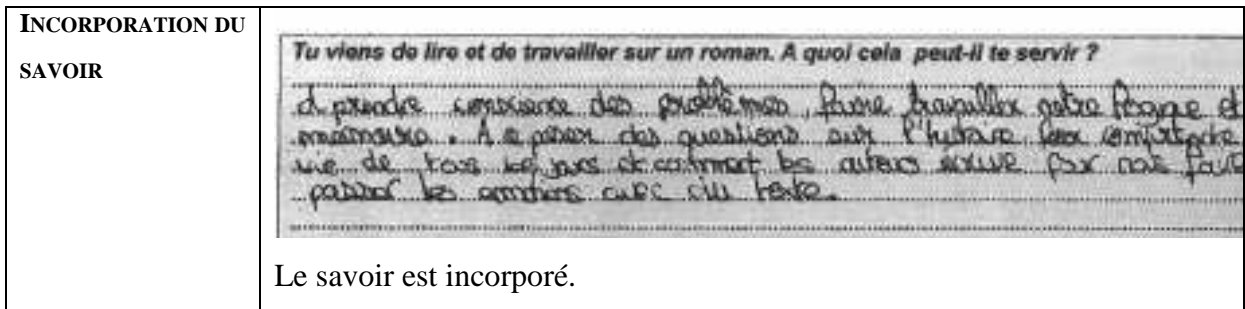 INCORPORATION DU
SAVOIR
Tu viens de lire et de travailler sur un roman. A quoi cela peut-il te servir ?
prendre conscience des problèmes, faire travailler notre et
mémoire. A se poser des questions sur l'
vie de tous les jours et comment les auteurs pour nous faire
passer les émotions avec du texte.
Le savoir est incorporé.